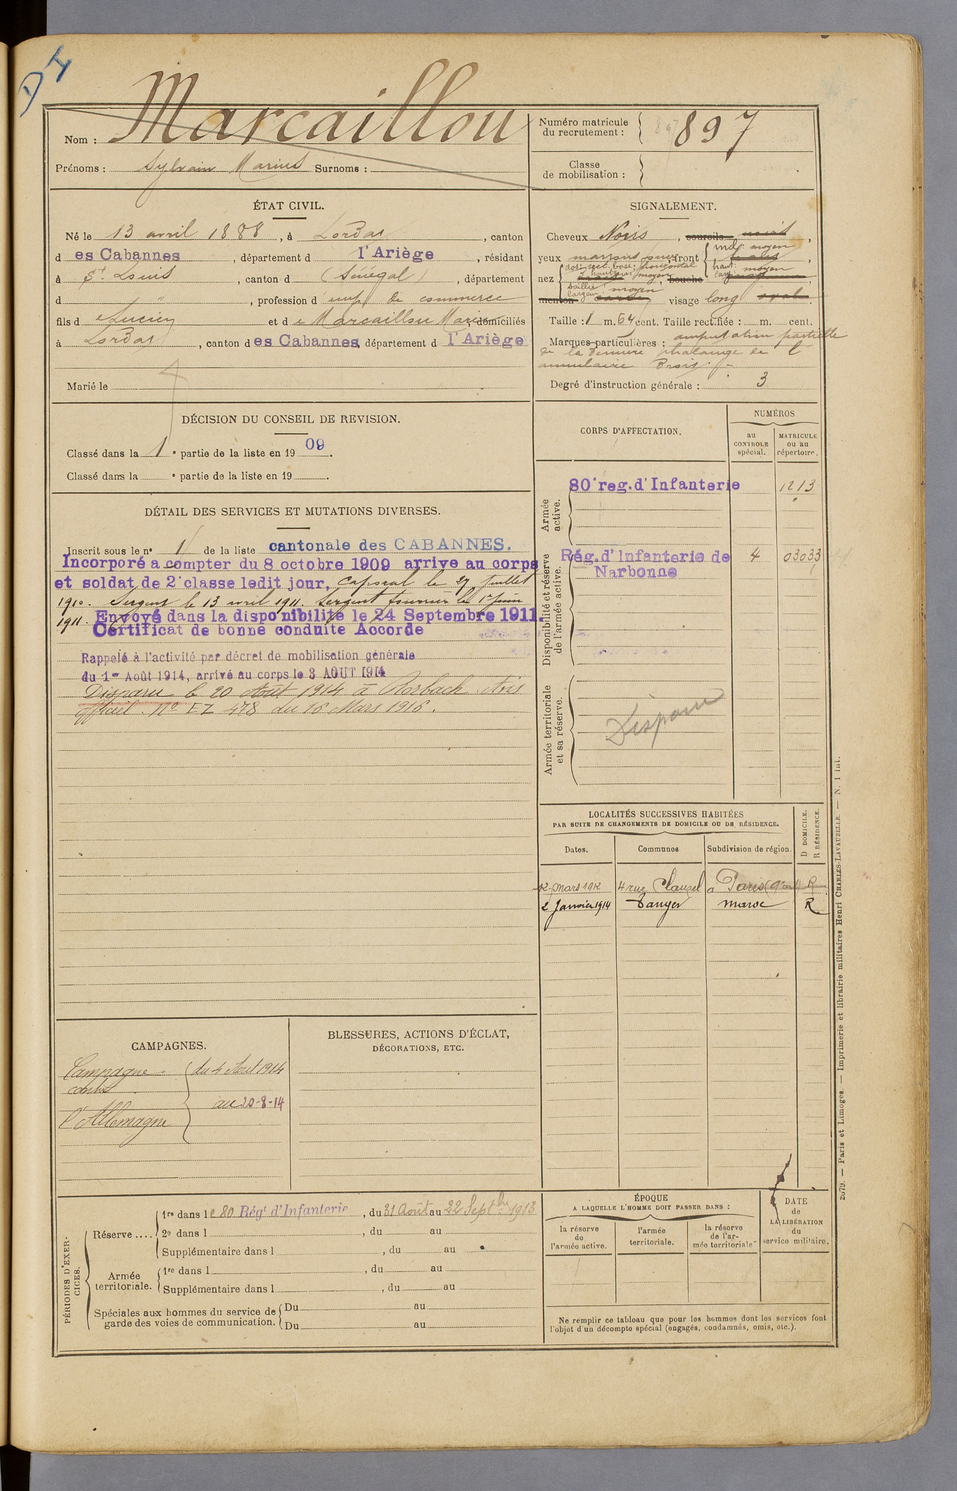 Nom : Marcaillou
Prénoms : Sylvain Marius Surnoms :
Numéro matricule du recrutement : 897
Classe de mobilisation :
ÉTAT CIVIL.
Né le 13 avril 1888, à Lordat, canton
des Cabannes, département d l'Ariège, résidant
à St Louis, canton d (Sénégal), département
d " , profession d'emp. de commerce
fils d e Lucien et d e Marcaillou Marie, domiciliés
à Lordat, canton des Cabannes, département d l'Ariège
Marié le
SIGNALEMENT.
Cheveux Noirs, sourcils
yeux marrons front incl. moyen
haut. moyen
nez dos rect. base horizontal
hauteur moyen bouche
saillie moyen
largeur
menton visage long ovale
Taille : 1 m. 64 cent. Taille rectifiée : m. cent.
Marques particulières : amputation partielle
de la dernière phalange de l'
annulaire droit.
Degré d'instruction générale : 3
DÉCISION DU CONSEIL DE REVISION.
Classé dans la 1e partie de la liste en 1909.
Classé dans la e partie de la liste en 19 .
DÉTAIL DES SERVICES ET MUTATIONS DIVERSES.
Inscrit sous le n° 1 de la liste cantonale des CABANNES.
Incorporé a compter du 8 octobre 1909 arrive au corps
et soldat de 2e classe ledit jour, Caporal le 27 juillet
1910. Sergent le 13 avril 1911. Sergent fourrier le 1er juin
1911. Envoyé dans la disponibilité le 24 Septembre 1911.
Certificat de bonne conduite Accorde
Rappelé à l'activité par décret de mobilisation générale
du 1er Août 1914, arrivé au corps le 3 AOUT 1914
Disparu le 20 Août 1914 à Rorbach Avis
officiel n° EZ 478 du 16 Mars 1916.
CORPS D'AFFECTATION.
NUMÉROS
au CONTROLE spécial.
MATRICULE ou au répertoire.
Armée active.
80e reg. d'Infanterie 1213
Disponibilité et réserve de l'armée active.
Rég. d'Infanterie de Narbonne 4 03033
Armée territoriale et sa réserve.
Disparu
LOCALITÉS SUCCESSIVES HABITÉES
PAR SUITE DE CHANGEMENTS DE DOMICILE OU DE RÉSIDENCE.
Dates. Communes Subdivision de région. D DOMICILE. R RÉSIDENCE.
12 mars 1912 4 rue Clauzel à Paris (9e arrt) R
2 Janvier 1914 Tanger Maroc R
CAMPAGNES.
Campagne contre l'Allemagne
du 4 Août 1914
au 20-8-14
BLESSURES, ACTIONS D'ÉCLAT,
DÉCORATIONS, ETC.
PÉRIODES D'EXERCICES.
Réserve .... 1re dans le 80 Régt d'Infanterie, du 31 Août au 22 Septbre 1913
2e dans l , du au
Supplémentaire dans l , du au
Armée territoriale. 1re dans l , du au
Supplémentaire dans l , du au
Spéciales aux hommes du service de garde des voies de communication. Du au
Du au
ÉPOQUE
A LAQUELLE L'HOMME DOIT PASSER DANS :
la réserve de l'armée active.
l'armée territoriale.
la réserve de l'armée territoriale
DATE de LA LIBÉRATION du service militaire.
Ne remplir ce tableau que pour les hommes dont les services font
l'objet d'un décompte spécial (engagés, condamnés, omis, etc.).
2579. — Paris et Limoges. — Imprimerie et librairie militaires Henri CHARLES-LAVAUZELLE. — N. 1 int.